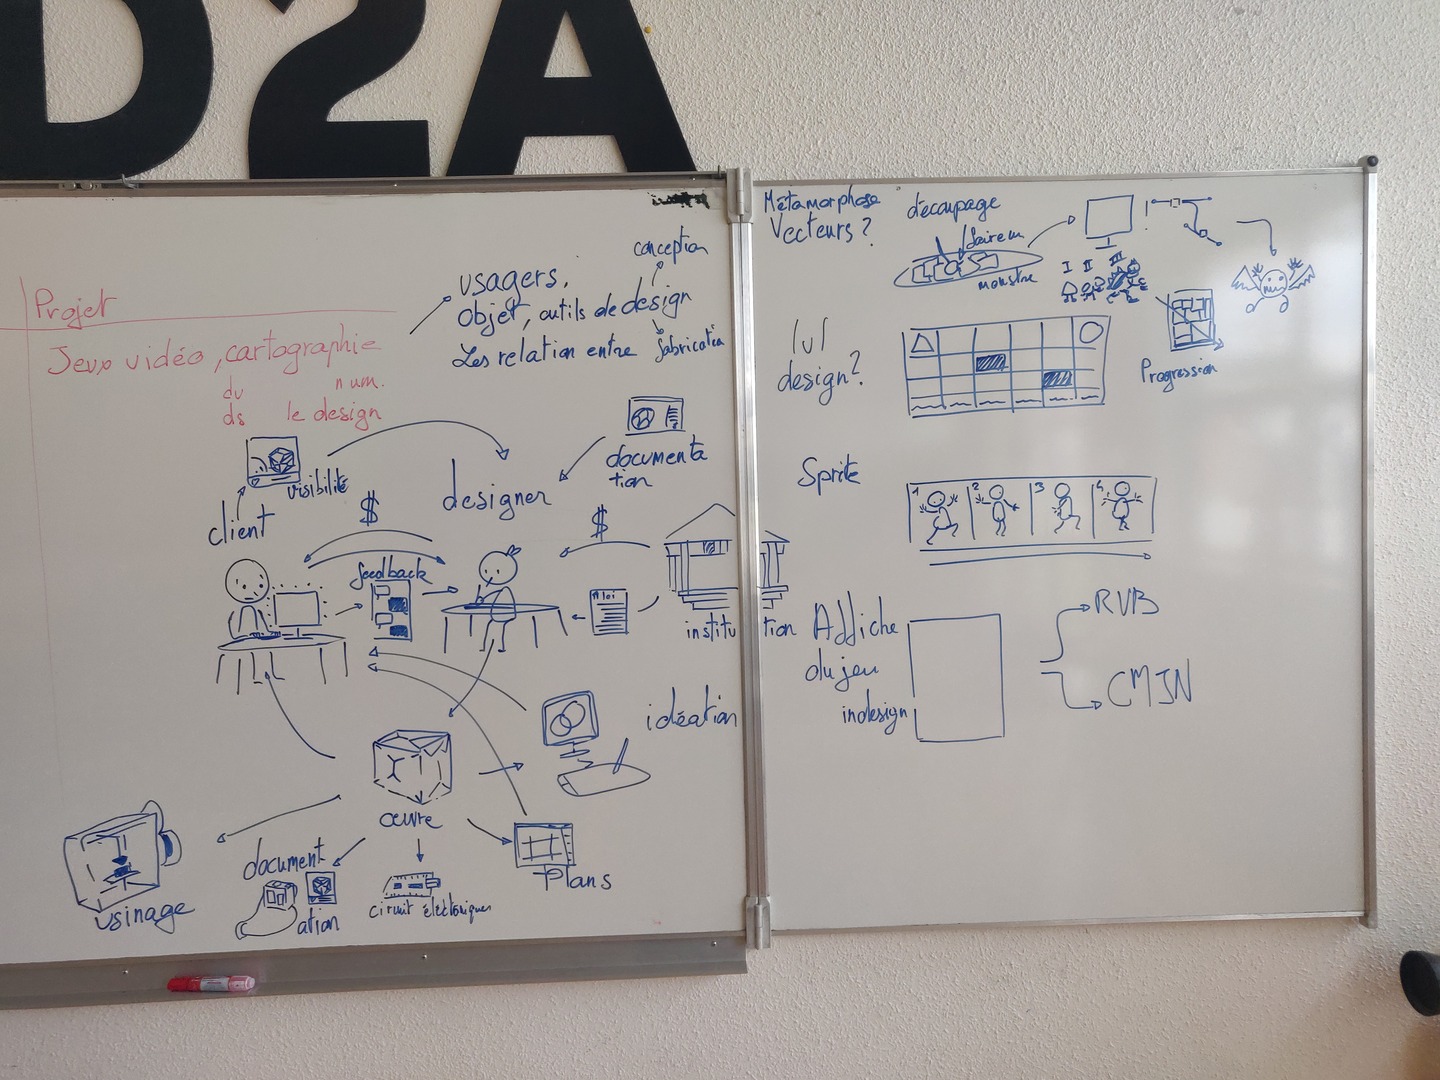 D2A
Projet
Jeux vidéo, cartographie
du num.
ds le design
conception
usagers,
objet, outils de design
Les relation entre fabrication
visibilité
client
$
designer
documenta
tion
$
feedback
loi
institution
idéation
œuvre
usinage
document
ation
circuit électroniques
Plans
Métamorphose
Vecteurs ?
découpage
faire un
monstre
I II III
Progression
lvl
design ?
Sprite
1 2 3 4
Affiche
du jeu
indesign
RVB
CMJN